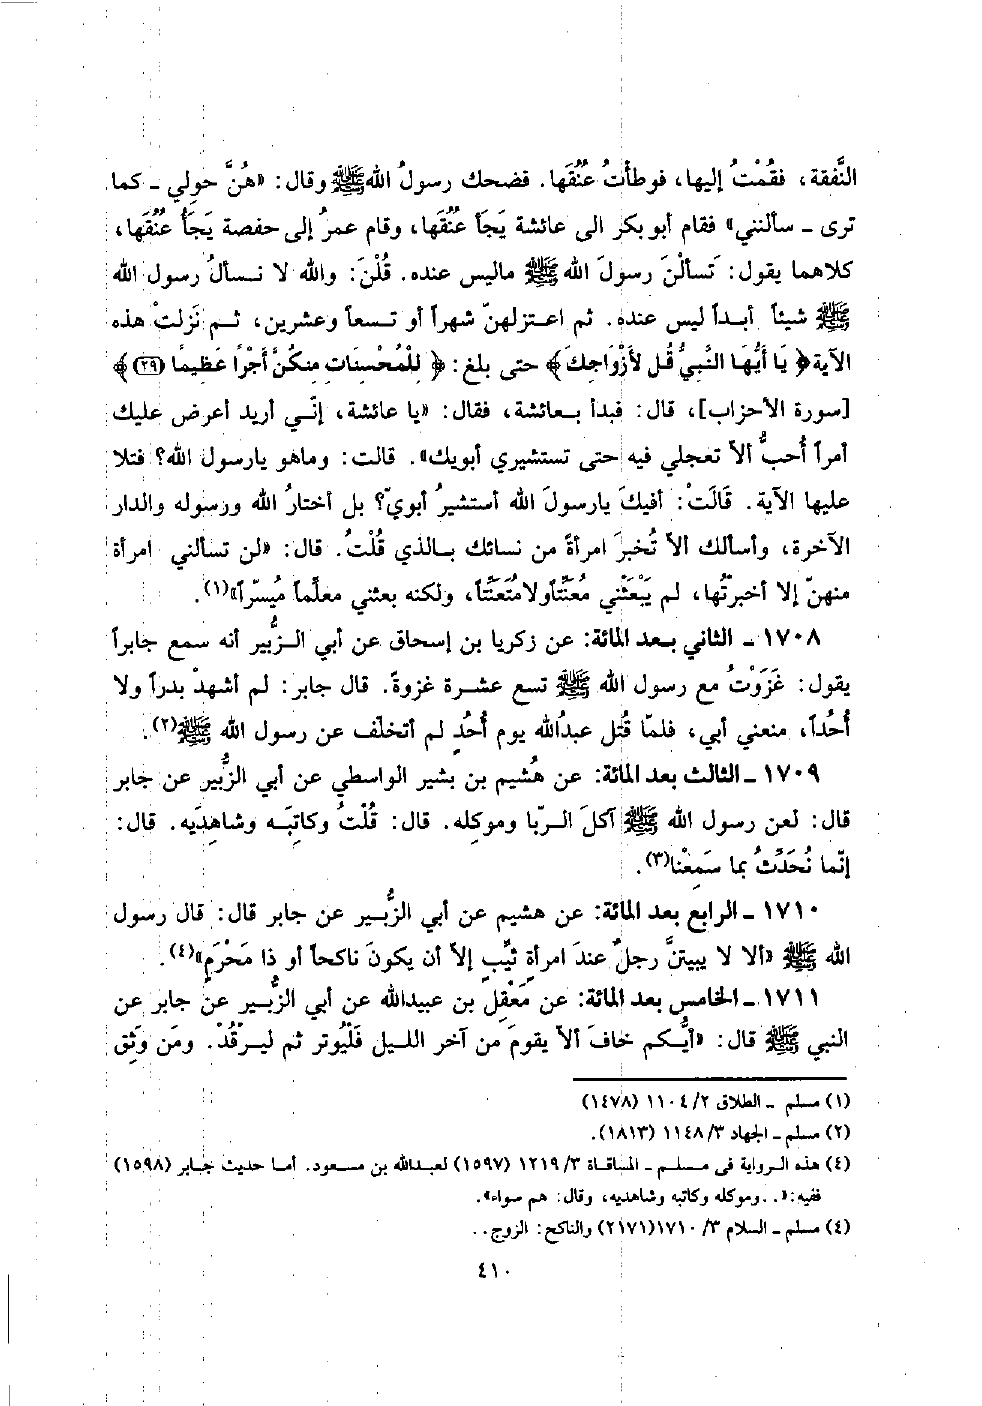 النَّفقة، فقُمْتُ إليها، فوطأْتُ عنُقَها. فضحك رسولُ الله ﷺ وقال: «هُنَّ حولي ـ كما
ترى ـ سألنني» فقام أبو بكر الى عائشة يَجَأُ عُنُقَها، وقام عمرُ إلى حفصة يَجَأُ عُنُقَها،
كلاهما يقول: تَسألْنَ رسولَ الله ﷺ ماليس عنده. قُلْنَ: والله لا نسألُ رسول الله
ﷺ شيئاً أبداً ليس عنده. ثم اعتزلهنّ شهراً أو تسعاً وعشرين، ثم نَزلتْ هذه
الآية ﴿يَا أَيُّهَا النَّبِيُّ قُل لأَزْوَاجِكَ﴾ حتى بلغ: ﴿لِلْمُحْسِنَاتِ مِنكُنَّ أَجْرًا عَظِيمًا (٢٩)﴾
[سورة الأحزاب]، قال: فبدأ بعائشة، فقال: «يا عائشة، إنّي أريد أعرض عليك
أمراً أُحبُّ ألاّ تعجلي فيه حتى تستشيري أبويك». قالت: وماهو يارسول الله؟ فتلا
عليها الآية. قَالَتْ: أفيكَ يارسولَ الله أستشيرُ أبويّ؟ بل أختارُ الله ورسوله والدار
الآخرة، وأسألك ألاّ تُخبرَ امرأةً من نسائك بالذي قُلْتُ. قال: «لن تسألني امرأة
منهنّ إلا أخبرتُها، لم يَبْعَثْني مُعَنِّتاً ولا مُتَعَنِّتاً، ولكنه بعثني معلِّماً مُيسّراً»(١).
١٧٠٨ ـ الثاني بعد المائة: عن زكريا بن إسحاق عن أبي الزُّبير أنه سمع جابراً
يقول: غَزَوْتُ مع رسول الله ﷺ تسع عشرة غزوةً. قال جابر: لم أشهدْ بدراً ولا
أُحُداً، منعني أبي، فلمّا قُتل عبدُالله يوم أُحُدٍ لم أتخلّف عن رسول الله ﷺ(٢).
١٧٠٩ ـ الثالث بعد المائة: عن هُشيم بن بشير الواسطي عن أبي الزُّبير عن جابر
قال: لعن رسول الله ﷺ آكلَ الرِّبا وموكله. قال: قُلْتُ وكاتِبَه وشاهِدَيه. قال:
إنّما نُحَدِّثُ بما سَمِعْنا(٣).
١٧١٠ ـ الرابع بعد المائة: عن هشيم عن أبي الزُّبير عن جابر قال: قال رسول
الله ﷺ «ألا لا يبيتنَّ رجلٌ عندَ امرأةٍ ثيِّبٍ إلاّ أن يكونَ ناكحاً أو ذا مَحْرَمٍ»(٤).
١٧١١ ـ الخامس بعد المائة: عن مَعْقِل بن عبيدالله عن أبي الزُّبير عن جابر عن
النبي ﷺ قال: «أيُّكم خافَ ألاّ يقومَ من آخر الليل فَلْيُوتر ثم ليرْقُدْ. ومَن وَثِق
(١) مسلم ـ الطلاق ٢/ ١١٠٤ (١٤٧٨)
(٢) مسلم ـ الجهاد ٣/ ١١٤٨ (١٨١٣).
(٤) هذه الرواية في مسلم ـ المساقاة ٣/ ١٢١٩ (١٥٩٧) لعبدالله بن مسعود. أما حديث جابر (١٥٩٨)
ففيه: «. . وموكله وكاتبه وشاهديه، وقال: هم سواء».
(٤) مسلم ـ السلام ٣/ ١٧١٠ (٢١٧١) والناكح: الزوج. .
٤١٠